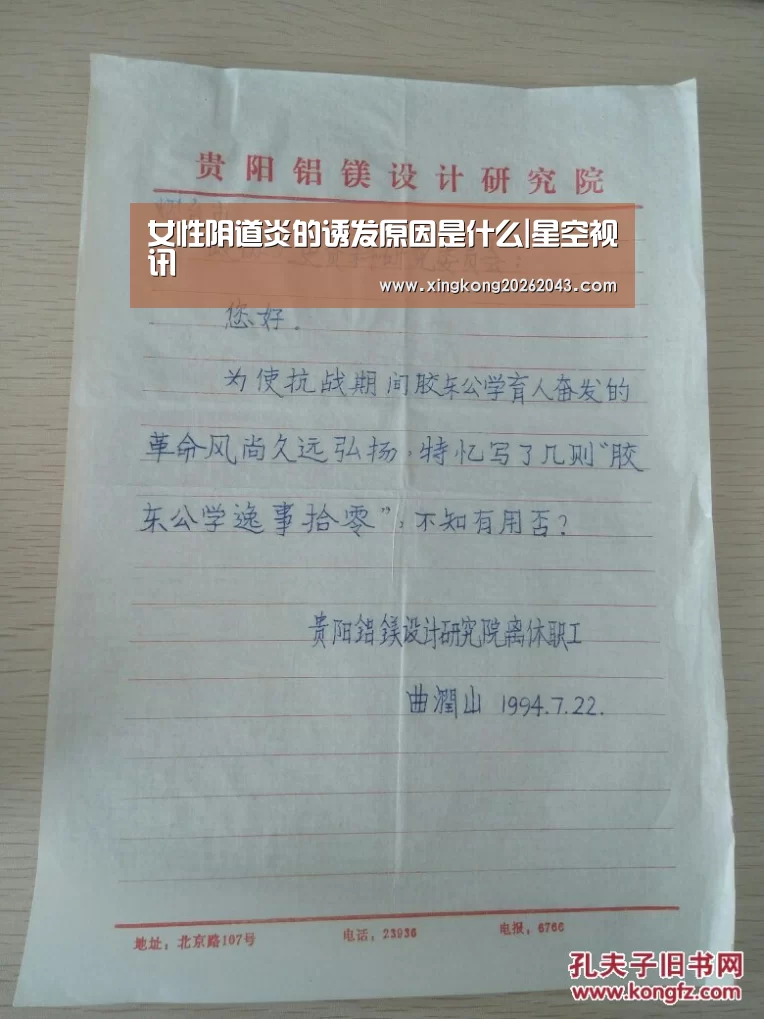 贵阳铝镁设计研究院
女性阴道炎的诱发原因是什么|星空视
讯
www.xingkong20262043.com
您好。
为使抗战期间胶东公学育人奋发的
革命风尚久远弘扬，特忆写了几则“胶
东公学逸事拾零”，不知有用否？
贵阳铝镁设计研究院离休职工
曲润山 1994.7.22.
地址：北京路107号 电话：23936 电报：6766
孔夫子旧书网
www.kongfz.com